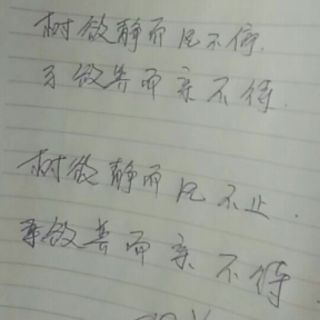 树欲静而风不停.
子欲养而亲不待.
树欲静而风不止.
欲养而亲不待